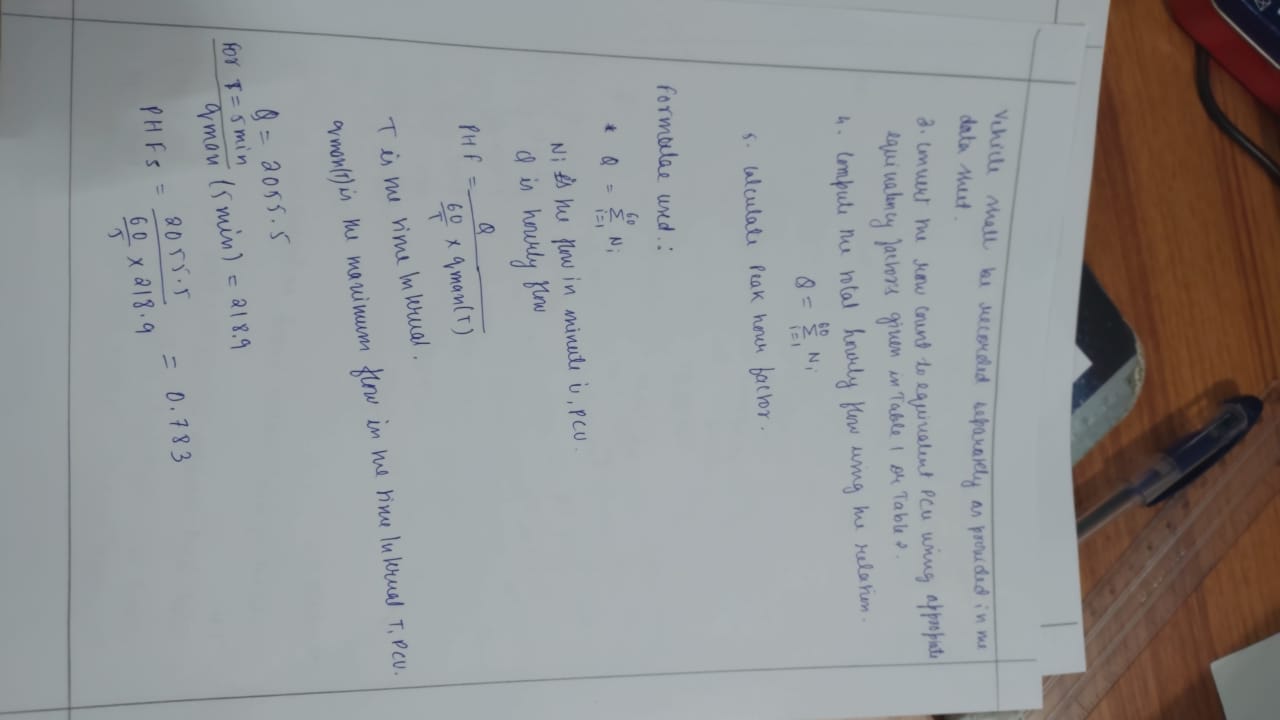 Vehicle shall be recorded separately as provided in the
data sheet.
3. Convert the row count to equivalent PCU using appropiate
equivalency factors given in Table 1 or Table 2.
4. Compute the total hourly flow using the relation.
Q = 60 Σ i=1 Ni
5. Calculate Peak hour factor.
Formulae used.:
* Q = 60 Σ i=1 Ni
Ni is the flow in minute i, PCU.
Q is hourly flow
PHF = Q
60/T x qmax(T)
T is the time Interval.
qmax(T) is the maximum flow in the time Interval T, PCU.
Q = 2055.5
For T = 5 min
qmax (5 min) = 218.9
PHF5 = 2055.5 = 0.783
60/5 x 218.9